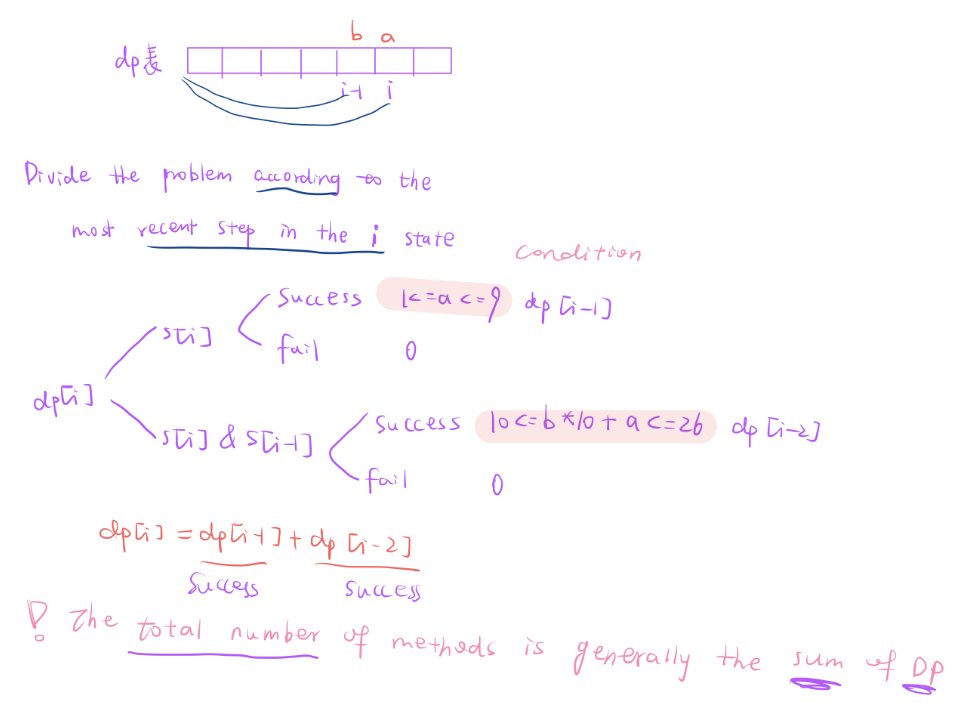 b a
dp表
i-1 i
Divide the problem according to the
most recent step in the i state
condition
success 1<=a<=9 dp[i-1]
s[i]
fail 0
dp[i]
success 10<=b*10+a<=26 dp[i-2]
s[i] & s[i-1]
fail 0
dp[i] = dp[i-1] + dp[i-2]
success success
! The total number of methods is generally the sum of Dp